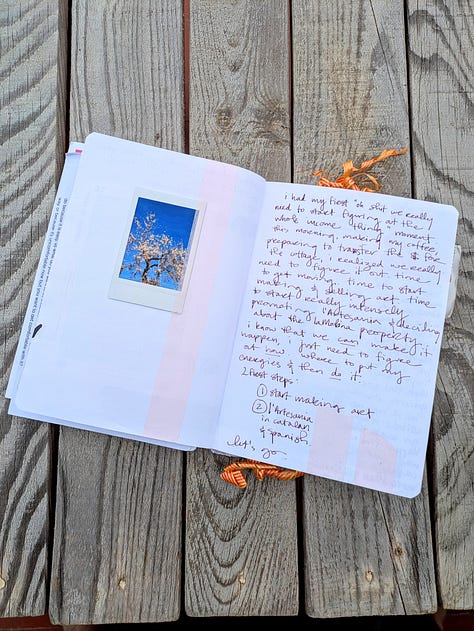 i had my first 'oh shit we really
need to start figuring out the
whole income thing' moment
this morning. making my coffee
preparing to transfer the $ for
the cottage i realized we really
need to figure it out. time
to get moving. time to start
making & selling art. time
to start really intensely
promoting l'Artesania & deciding
about the property.
i know that we can make it
happen, i just need to figure
out now where to put my
energies & then do it.
2 first steps:
① start making art
② l'Artesania
in catalan
& spanish.
let's go